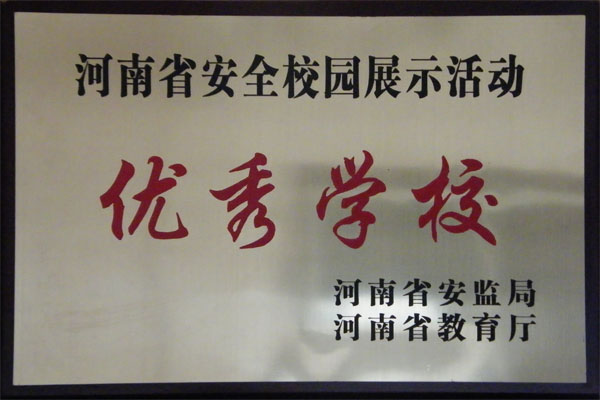 河南省安全校园展示活动
优秀学校
河南省安监局
河南省教育厅